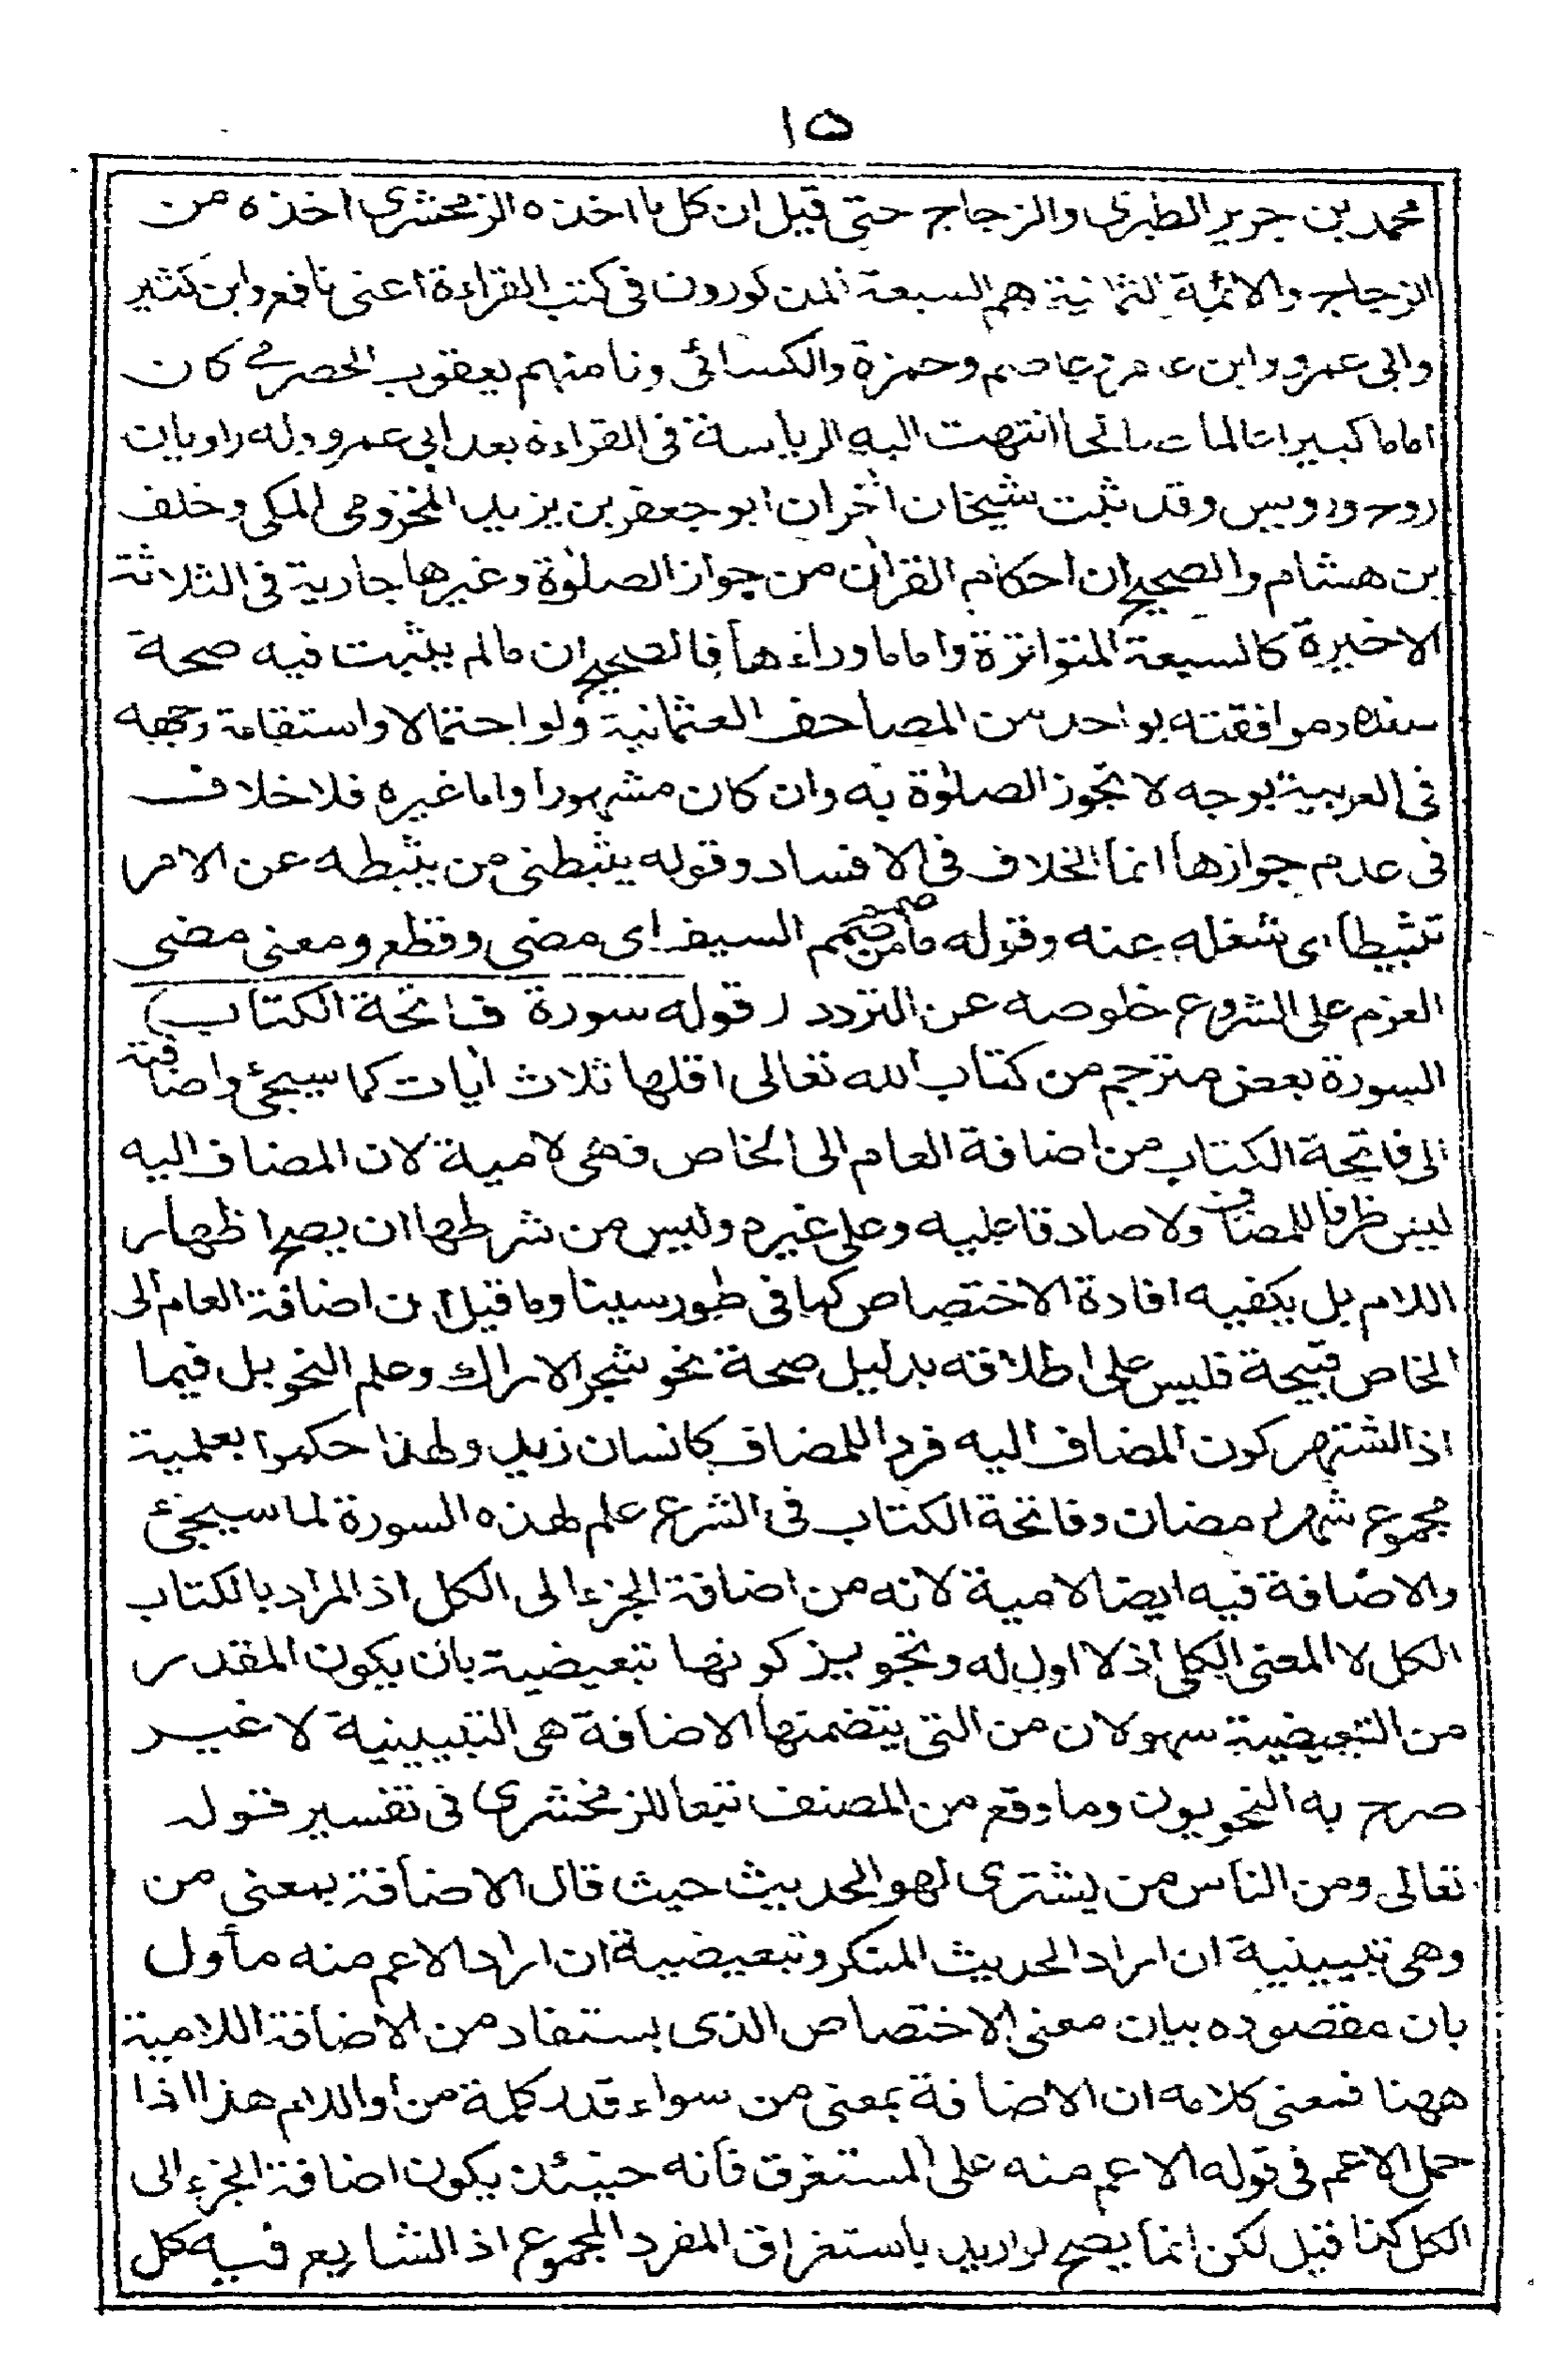 ١٥
محمد بن جرير الطبرى والزجاج حتى قيل ان كل ما اخذه الزمخشرى اخذه من
الزجاج والائمة الثمانية هم السبعة المذكورون فى كتب القراءة اعنى نافع وابن كثير
وابى عمرو وابن عامر وعاصم وحمزة والكسائى وثامنهم يعقوب الحضرمى كان
اماما كبيرا عالما صالحا انتهت اليه الرياسة فى القراءة بعد ابى عمرو وله راويان
روح ورويس وقد ثبت شيخان اخران ابو جعفر بن يزيد المخزومى المكى وخلف
بن هشام والصحيح ان احكام القران من جواز الصلوٰة وغيرها جارية فى الثلاثة
الاخيرة كالسبعة المتواترة واما ما وراءها فالصحيح ان مالم يثبت فيه صحة
سنده وموافقته بواحد من المصاحف العثمانية ولو احتمالا واستقامة وجهه
فى العربية بوجه لا تجوز الصلوٰة به وان كان مشهورا واما غيره فلا خلاف
فى عدم جوازها انما الخلاف فى الافساد وقوله يثبطنى من يثبطه عن الامر
تثبيطا اى شغله عنه وقوله ما من صمم السيف اى مضى وقطع ومعنى مضى
العزم على الشروع خلوصه عن التردد ( قوله سورة فاتحة الكتاب)
السورة بعض مترجم من كتاب الله تعالى اقلها ثلاث أيات كما سيجئ واضافته
الى فاتحة الكتاب من اضافة العام الى الخاص فهى لامية لان المضاف اليه
ليس ظرفا للمضاف ولا صادقا عليه وعلى غيره وليس من شرطها ان يصح اظهار
اللام بل يكفيه افادة الاختصاص كما فى طور سينا وما قيل ان اضافة العام الى
الخاص قبيحة فليس على اطلاقه بدليل صحة نحو شجر الاراك وعلم النحو بل فيما
اذا اشتهر كون المضاف اليه فردا للمضاف كانسان زيد ولهذا حكموا بعلمية
مجموع شهر رمضان وفاتحة الكتاب فى الشرع علم لهذه السورة لما سيجئ
والاضافة فيه ايضا لامية لانه من اضافة الجزء الى الكل اذ المراد بالكتاب
الكل لا المعنى الكلى اذ لا اول له وتجويز كونها تبعيضية بان يكون المقدر
من التبعيضية سهو لان من التى يتضمنها الاضافة هى التبيينية لا غير
صرح به النحويون وما وقع من المصنف تبعا للزمخشرى فى تفسير قوله
تعالى ومن الناس من يشترى لهو الحديث حيث قال الاضافة بمعنى من
وهى تبيينية ان اراد الحديث المنكر وتبعيضية ان اراد الاعم منه مأول
بان مقصوده بيان معنى الاختصاص الذى يستفاد من الاضافة اللامية
ههنا فمعنى كلامه ان الاضافة بمعنى من سواء قدر كلمة من أو اللام هذا اذا
حمل الاعم فى قوله الاعم منه على المستغرق فانه حينئذ يكون اضافة الجزء الى
الكل كذا قيل لكن انما يصح لو اريد باستغراق المفرد المجموع اذ الشايع فيه كل